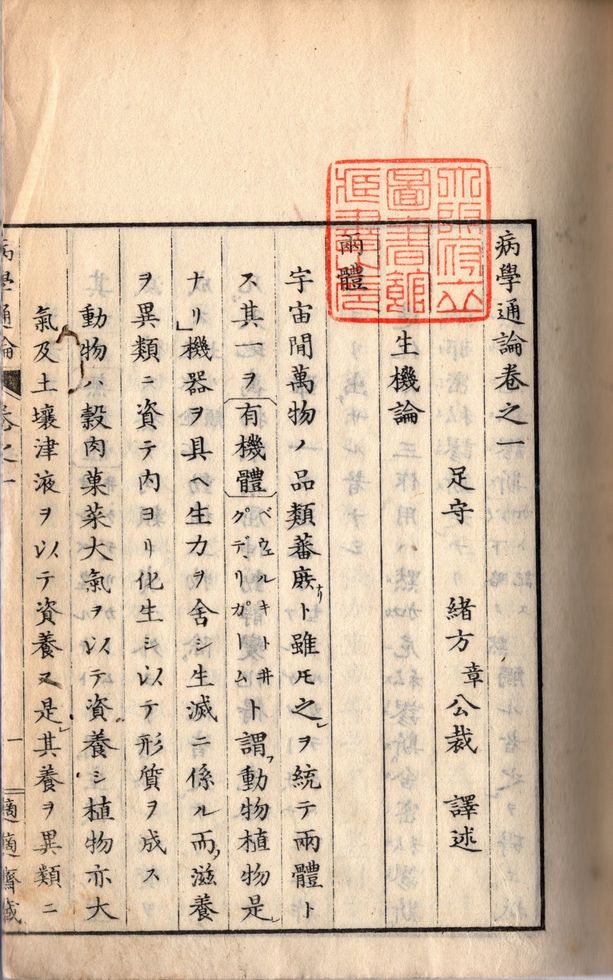 病學通論卷之一
足守 緒方章公裁 譯述
生機論
兩體
宇宙間萬物ノ品類蕃廡ナリト雖モ之ヲ統テ兩體ト
ス其一ヲ有機體ベウェルキトヰグデ、リガームト謂動物植物是
ナリ機器ヲ具ヘ生力ヲ舍シ生滅ニ係ル而滋養
ヲ異類ニ資テ内ヨリ化生シ以テ形質ヲ成ス
動物ハ穀肉菓菜大氣ヲ以テ資養シ植物亦大
氣及土壤津液ヲ以テ資養ス是其養ヲ異類ニ
病學通論 卷之一 一 適適齋藏
大阪府立圖書館藏書之印